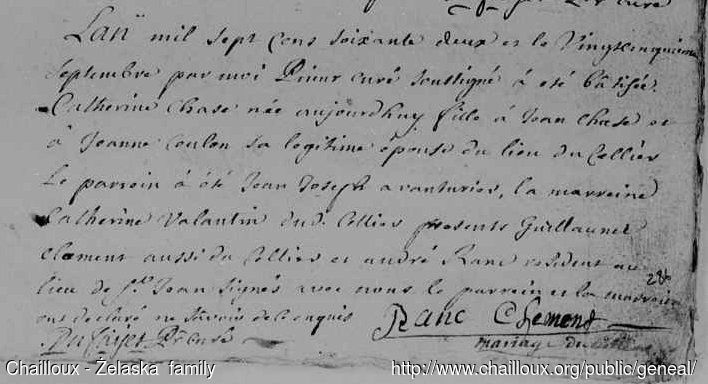 Lan mil sept cens soixante deux et le Vingtcinquieme
Septembre par moi Prieur curé soussigné à eté bâtisée
Catherine Chase née aujourdhuy fille à Jean Chase et
à Jeanne Coulon sa legitime épouse du lieu du Cellier
Le parrein à été Jean Joseph avanturier, la marreine
Catherine Valantin dud. Cellier presents Guillaume
Clement aussi du Cellier et andré Ranc resident au
lieu de St. Jean signés avec nous le parrein et la marreine
ont declaré ne savoir de ce enquis
Ranc Clement
Chailloux - Želaska family
http://www.chailloux.org/public/geneal/